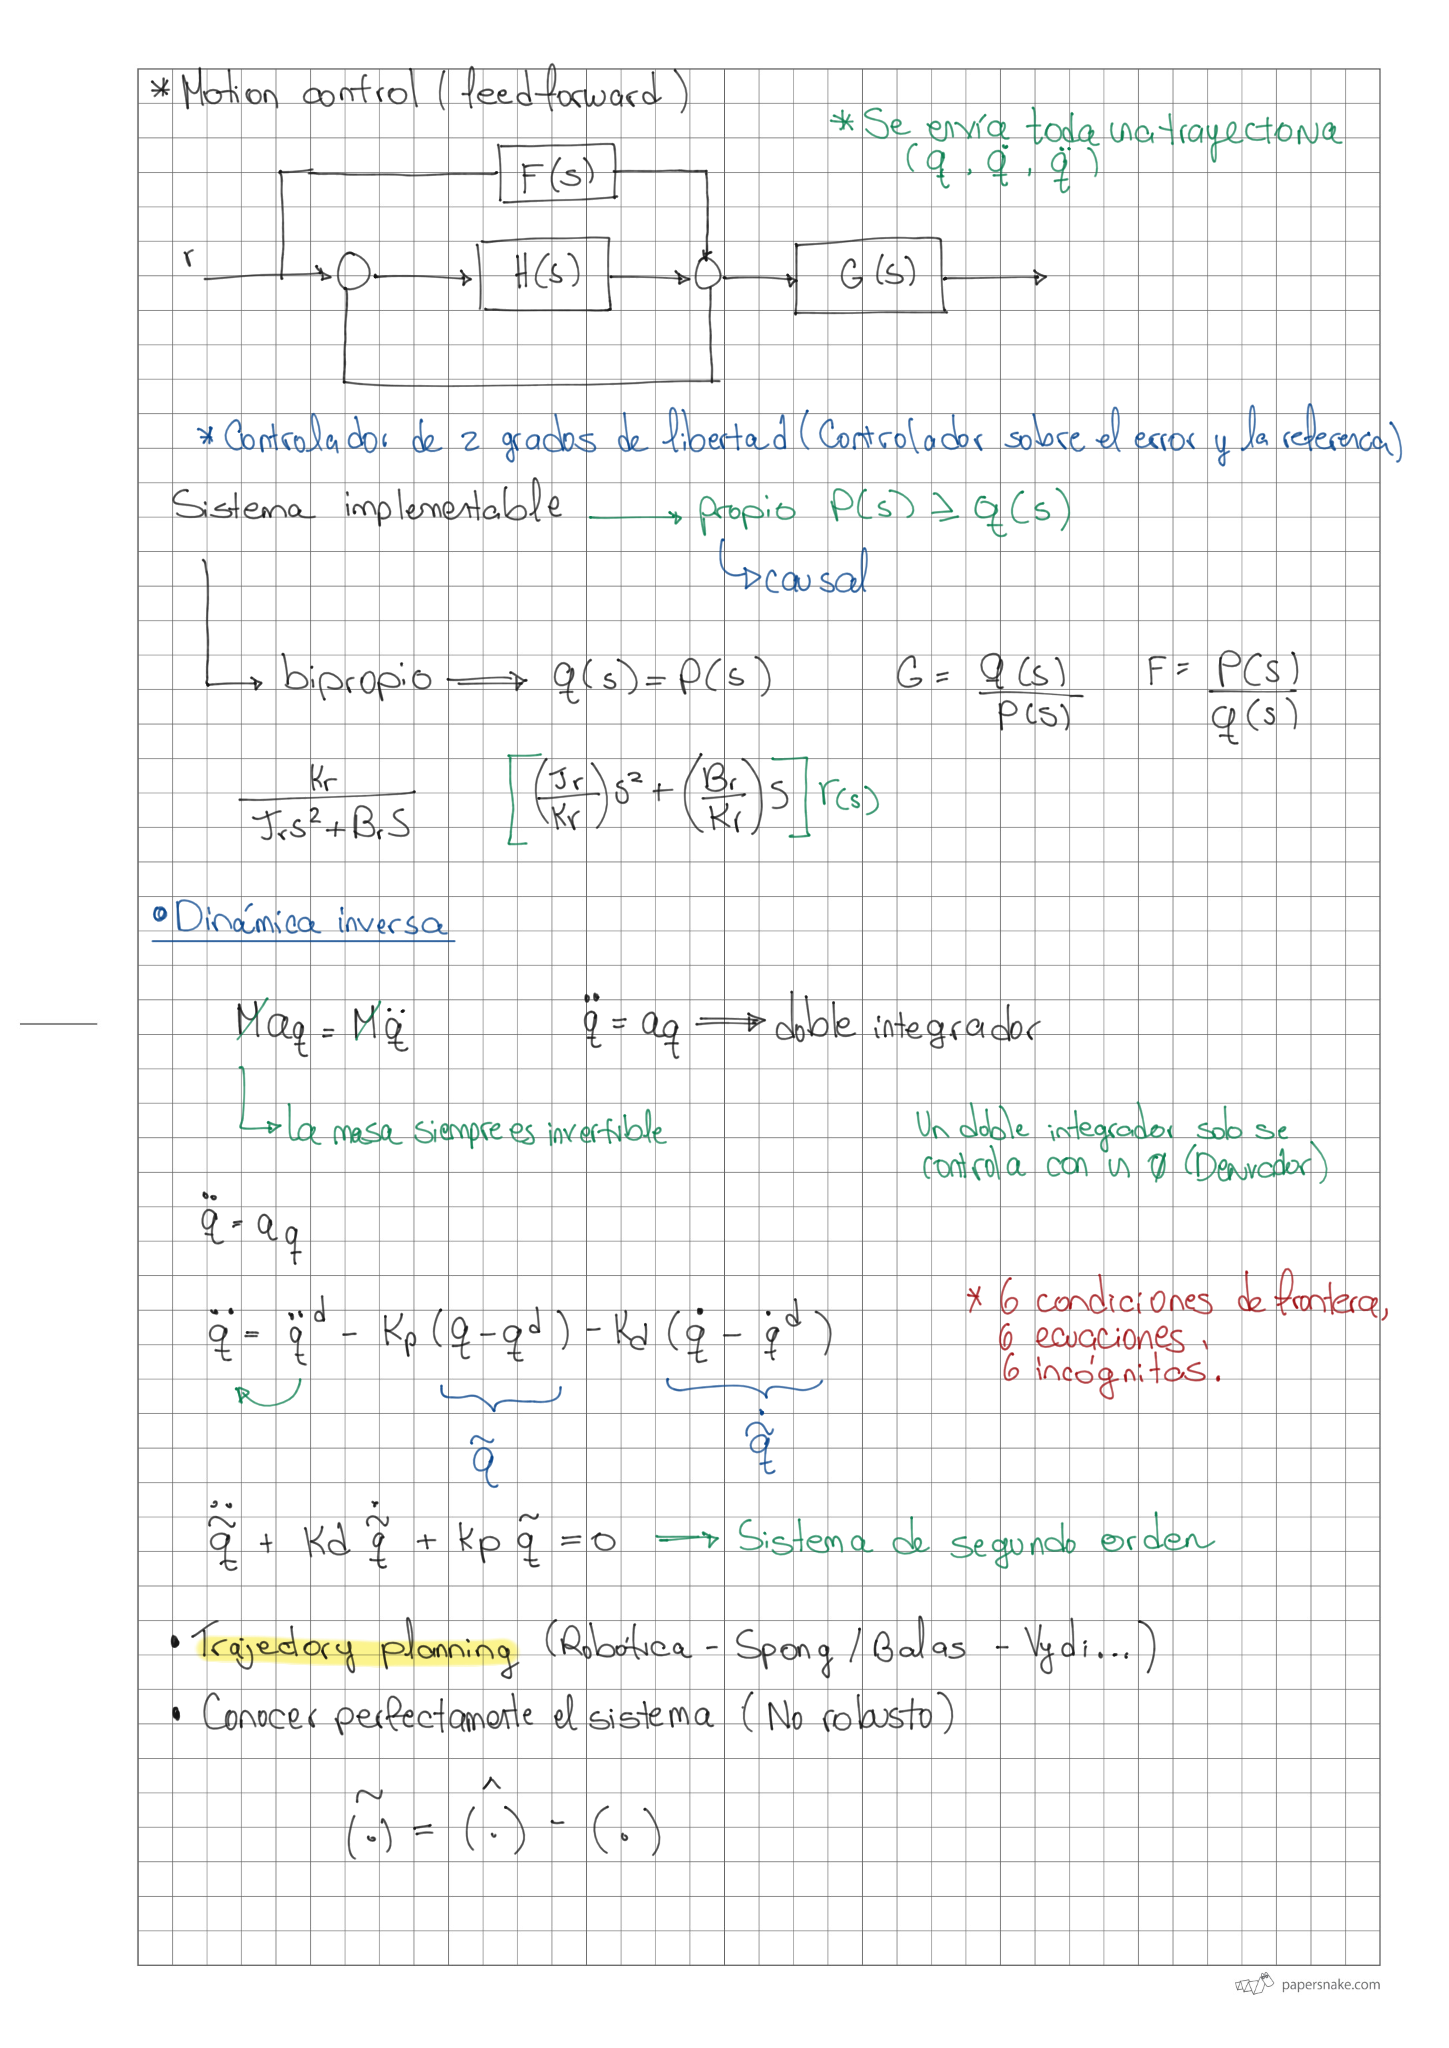 * Motion control (feedforward)
* Se envía toda una trayectoria
(q, q̇, q̈)
F(s)
r
H(s)
G(s)
* Controlador de 2 grados de libertad (Controlador sobre el error y la referencia)
Sistema implementable → propio P(s) ≥ q(s)
↳ causal
↳ bipropio ⟹ q(s) = P(s)   G = q(s)/P(s)   F = P(s)/q(s)
Kr/(Jrs²+BrS)   [(Jr/Kr)s² + (Br/Kr)s] r(s)
• Dinámica inversa
Maq = Mq̈   q̈ = aq ⟹ doble integrador
↳ La masa siempre es invertible
Un doble integrador solo se
controla con un (Derivador)
q̈ = aq
q̈ = q̈ᵈ - Kp (q - qᵈ) - Kd (q̇ - q̇ᵈ)
* 6 condiciones de frontera,
6 ecuaciones,
6 incógnitas.
q̃   q̃̇
q̃̈ + Kd q̃̇ + Kp q̃ = 0 → Sistema de segundo orden
• Trajectory planning (Robótica - Spong / Balas - Vydi...)
• Conocer perfectamente el sistema (No robusto)
(·)̃ = (·)̂ - (·)
papersnake.com